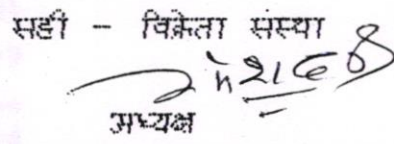 सही - विक्रेता संस्था
अध्यक्ष